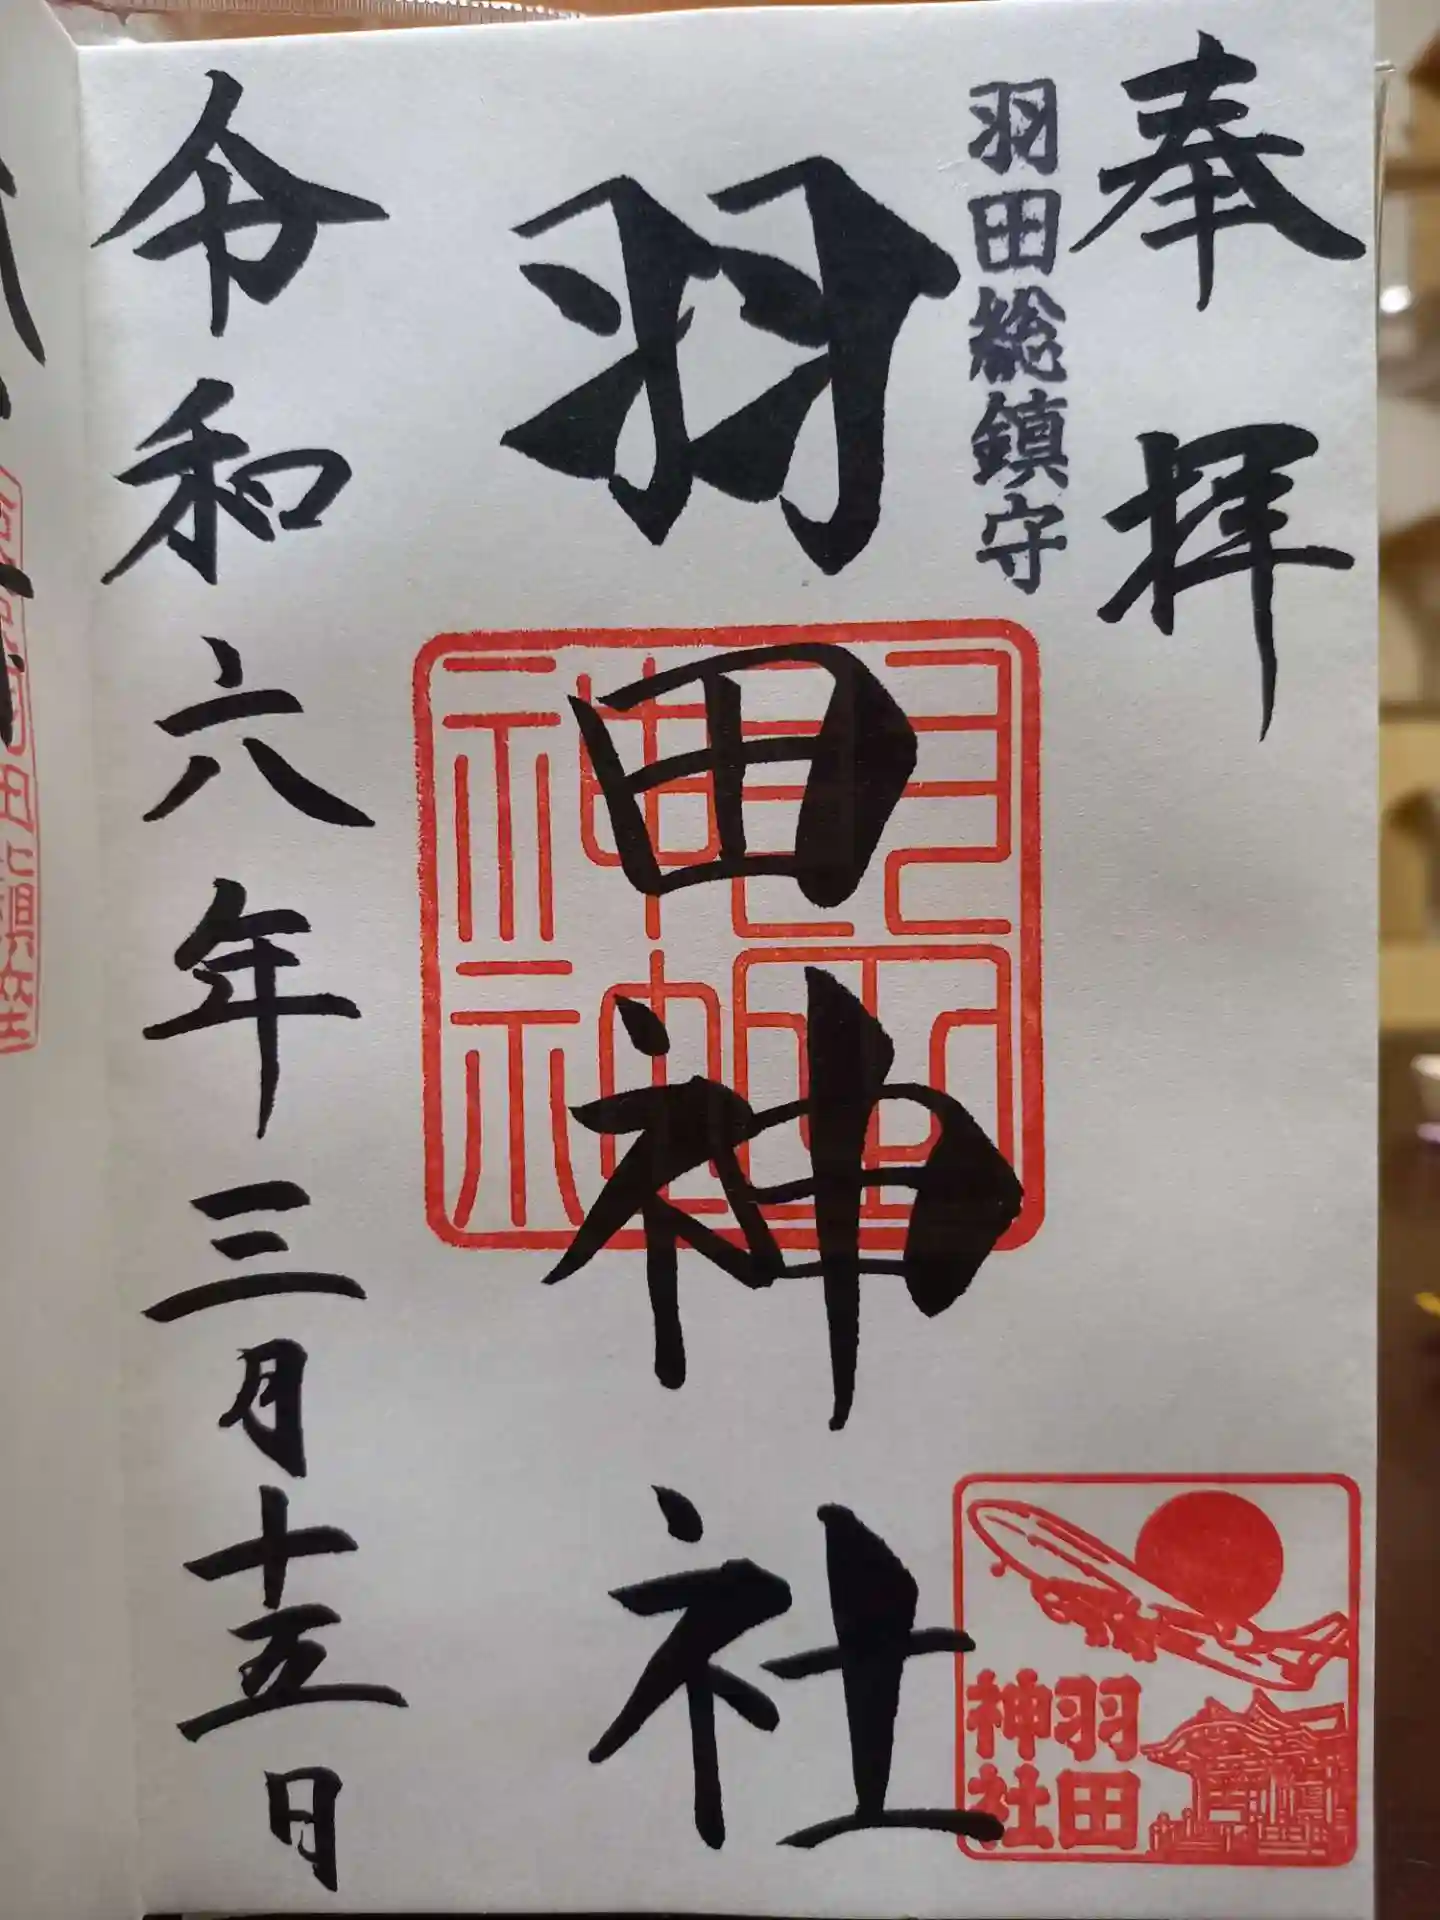 奉拝
羽田総鎮守
羽田神社
令和六年三月十五日
羽田
神社